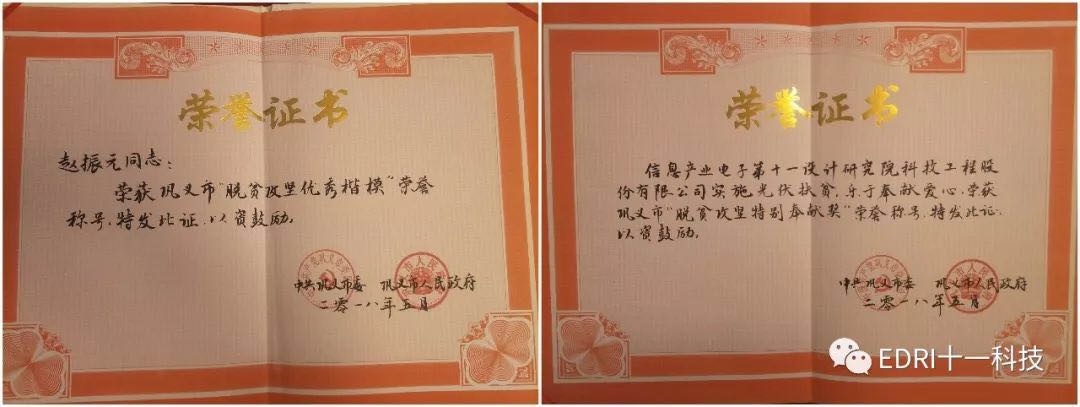 荣誉证书
赵振元同志：
荣获巩义市“脱贫攻坚优秀楷模”荣誉
称号，特发此证，以资鼓励。
中共巩义市委 巩义市人民政府
二零一八年五月
荣誉证书
信息产业电子第十一设计研究院科技工程股
份有限公司实施光伏扶贫，乐于奉献爱心，荣获
巩义市“脱贫攻坚特别奉献奖”荣誉称号，特发此证，
以资鼓励。
中共巩义市委 巩义市人民政府
二零一八年五月
EDRI十一科技